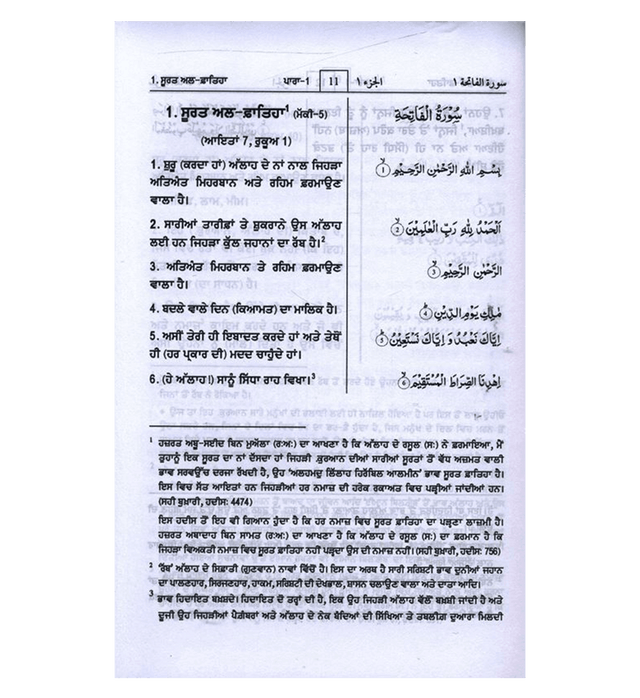 1. ਸੂਰਤ ਅਲ-ਫ਼ਾਤਿਹਾ ਪਾਰਾ-1 11 الجزء ١ سورة الفاتحة ١
1. ਸੂਰਤ ਅਲ-ਫ਼ਾਤਿਹਾ¹ (ਮੱਕੀ-5)
(ਆਇਤਾਂ 7, ਰੁਕੂਅ 1)
1. ਸ਼ੁਰੂ (ਕਰਦਾ ਹਾਂ) ਅੱਲਾਹ ਦੇ ਨਾਂ ਨਾਲ ਜਿਹੜਾ
ਅਤਿਅੰਤ ਮਿਹਰਬਾਨ ਅਤੇ ਰਹਿਮ ਫ਼ਰਮਾਉਣ
ਵਾਲਾ ਹੈ।
2. ਸਾਰੀਆਂ ਤਾਰੀਫ਼ਾਂ ਤੇ ਸ਼ੁਕਰਾਨੇ ਉਸ ਅੱਲਾਹ
ਲਈ ਹਨ ਜਿਹੜਾ ਕੁੱਲ ਜਹਾਨਾਂ ਦਾ ਰੱਬ ਹੈ।²
3. ਅਤਿਅੰਤ ਮਿਹਰਬਾਨ ਤੇ ਰਹਿਮ ਫ਼ਰਮਾਉਣ
ਵਾਲਾ ਹੈ।
4. ਬਦਲੇ ਵਾਲੇ ਦਿਨ (ਕਿਆਮਤ) ਦਾ ਮਾਲਿਕ ਹੈ।
5. ਅਸੀਂ ਤੇਰੀ ਹੀ ਇਬਾਦਤ ਕਰਦੇ ਹਾਂ ਅਤੇ ਤੇਥੋਂ
ਹੀ (ਹਰ ਪ੍ਰਕਾਰ ਦੀ) ਮਦਦ ਚਾਹੁੰਦੇ ਹਾਂ।
6. (ਹੇ ਅੱਲਾਹ!) ਸਾਨੂੰ ਸਿੱਧਾ ਰਾਹ ਵਿਖਾ।³
سُوْرَةُ الْفَاتِحَةِ
بِسْمِ اللهِ الرَّحْمٰنِ الرَّحِيْمِ ①
اَلْحَمْدُ لِلّٰهِ رَبِّ الْعٰلَمِيْنَ ②
الرَّحْمٰنِ الرَّحِيْمِ ③
مٰلِكِ يَوْمِ الدِّيْنِ ④
اِيَّاكَ نَعْبُدُ وَ اِيَّاكَ نَسْتَعِيْنُ ⑤
اِهْدِنَا الصِّرَاطَ الْمُسْتَقِيْمَ ⑥
¹ ਹਜ਼ਰਤ ਅਬੂ-ਸਈਦ ਬਿਨ ਮੁਅੱਲਾ (ਰ:ਅ:) ਦਾ ਆਖਣਾ ਹੈ ਕਿ ਅੱਲਾਹ ਦੇ ਰਸੂਲ (ਸ:) ਨੇ ਫ਼ਰਮਾਇਆ, ਮੈਂ
ਤੁਹਾਨੂੰ ਇਕ ਸੂਰਤ ਦਾ ਨਾਂ ਦੱਸਦਾ ਹਾਂ ਜਿਹੜੀ .ਕੁਰਆਨ ਦੀਆਂ ਸਾਰੀਆਂ ਸੂਰਤਾਂ ਤੋਂ ਵੱਧ ਅਜ਼ਮਤ ਵਾਲੀ
ਭਾਵ ਸਰਵਉੱਚ ਦਰਜਾ ਰੱਖਦੀ ਹੈ, ਉਹ ‘ਅਲਹਮਦੁ ਲਿੱਲਾਹ ਹਿਰੱਬਿਲ ਆਲਮੀਨ’ ਭਾਵ ਸੂਰਤ ਫ਼ਾਤਿਹਾ ਹੈ।
ਇਸ ਵਿਚ ਸੱਤ ਆਇਤਾਂ ਹਨ ਜਿਹੜੀਆਂ ਹਰ ਨਮਾਜ਼ ਦੀ ਹਰੇਕ ਰਕਾਅਤ ਵਿਚ ਪੜ੍ਹੀਆਂ ਜਾਂਦੀਆਂ ਹਨ।
(ਸਹੀ ਬੁਖ਼ਾਰੀ, ਹਦੀਸ: 4474)
ਇਸ ਹਦੀਸ ਤੋਂ ਇਹ ਵੀ ਗਿਆਨ ਹੁੰਦਾ ਹੈ ਕਿ ਹਰ ਨਮਾਜ਼ ਵਿਚ ਸੂਰਤ ਫ਼ਾਤਿਹਾ ਦਾ ਪੜ੍ਹਣਾ ਲਾਜ਼ਮੀ ਹੈ।
ਹਜ਼ਰਤ ਅਬਾਦਾਹ ਬਿਨ ਸਾਮਤ (ਰ:ਅ:) ਦਾ ਆਖਣਾ ਹੈ ਕਿ ਅੱਲਾਹ ਦੇ ਰਸੂਲ (ਸ:) ਦਾ ਫ਼ਰਮਾਨ ਹੈ ਕਿ
ਜਿਹੜਾ ਵਿਅਕਤੀ ਨਮਾਜ਼ ਵਿਚ ਸੂਰਤ ਫ਼ਾਤਿਹਾ ਨਹੀਂ ਪੜ੍ਹਦਾ ਉਸ ਦੀ ਨਮਾਜ਼ ਨਹੀਂ। (ਸਹੀ ਬੁਖ਼ਾਰੀ, ਹਦੀਸ: 756)
² ‘ਰੱਬ’ ਅੱਲਾਹ ਦੇ ਸਿਫ਼ਾਤੀ (ਗੁਣਵਾਨ) ਨਾਵਾਂ ਵਿੱਚੋਂ ਹੈ। ਇਸ ਦਾ ਅਰਥ ਹੈ ਸਾਰੀ ਸਰਿਸ਼ਟੀ ਭਾਵ ਦੁਨੀਆਂ ਜਹਾਨ
ਦਾ ਪਾਲਣਹਾਰ, ਸਿਰਜਣਹਾਰ, ਹਾਕਮ, ਸਰਿਸ਼ਟੀ ਦੀ ਦੇਖਭਾਲ, ਸ਼ਾਸਨ ਚਲਾਉਣ ਵਾਲਾ ਅਤੇ ਦਾਤਾ ਆਦਿ।
³ ਭਾਵ ਹਿਦਾਇਤ ਬਖ਼ਸ਼ਦੇ। ਹਿਦਾਇਤ ਦੋ ਤਰ੍ਹਾਂ ਦੀ ਹੈ, ਇਕ ਉਹ ਜਿਹੜੀ ਅੱਲਾਹ ਵੱਲੋਂ ਬਖ਼ਸ਼ੀ ਜਾਂਦੀ ਹੈ ਅਤੇ
ਦੂਜੀ ਉਹ ਜਿਹੜੀਆਂ ਪੈਗ਼ੰਬਰਾਂ ਅਤੇ ਅੱਲਾਹ ਦੇ ਨੇਕ ਬੰਦਿਆਂ ਦੀ ਸਿੱਖਿਆ ਤੇ ਤਬਲੀਗ਼ ਦੁਆਰਾ ਮਿਲਦੀ